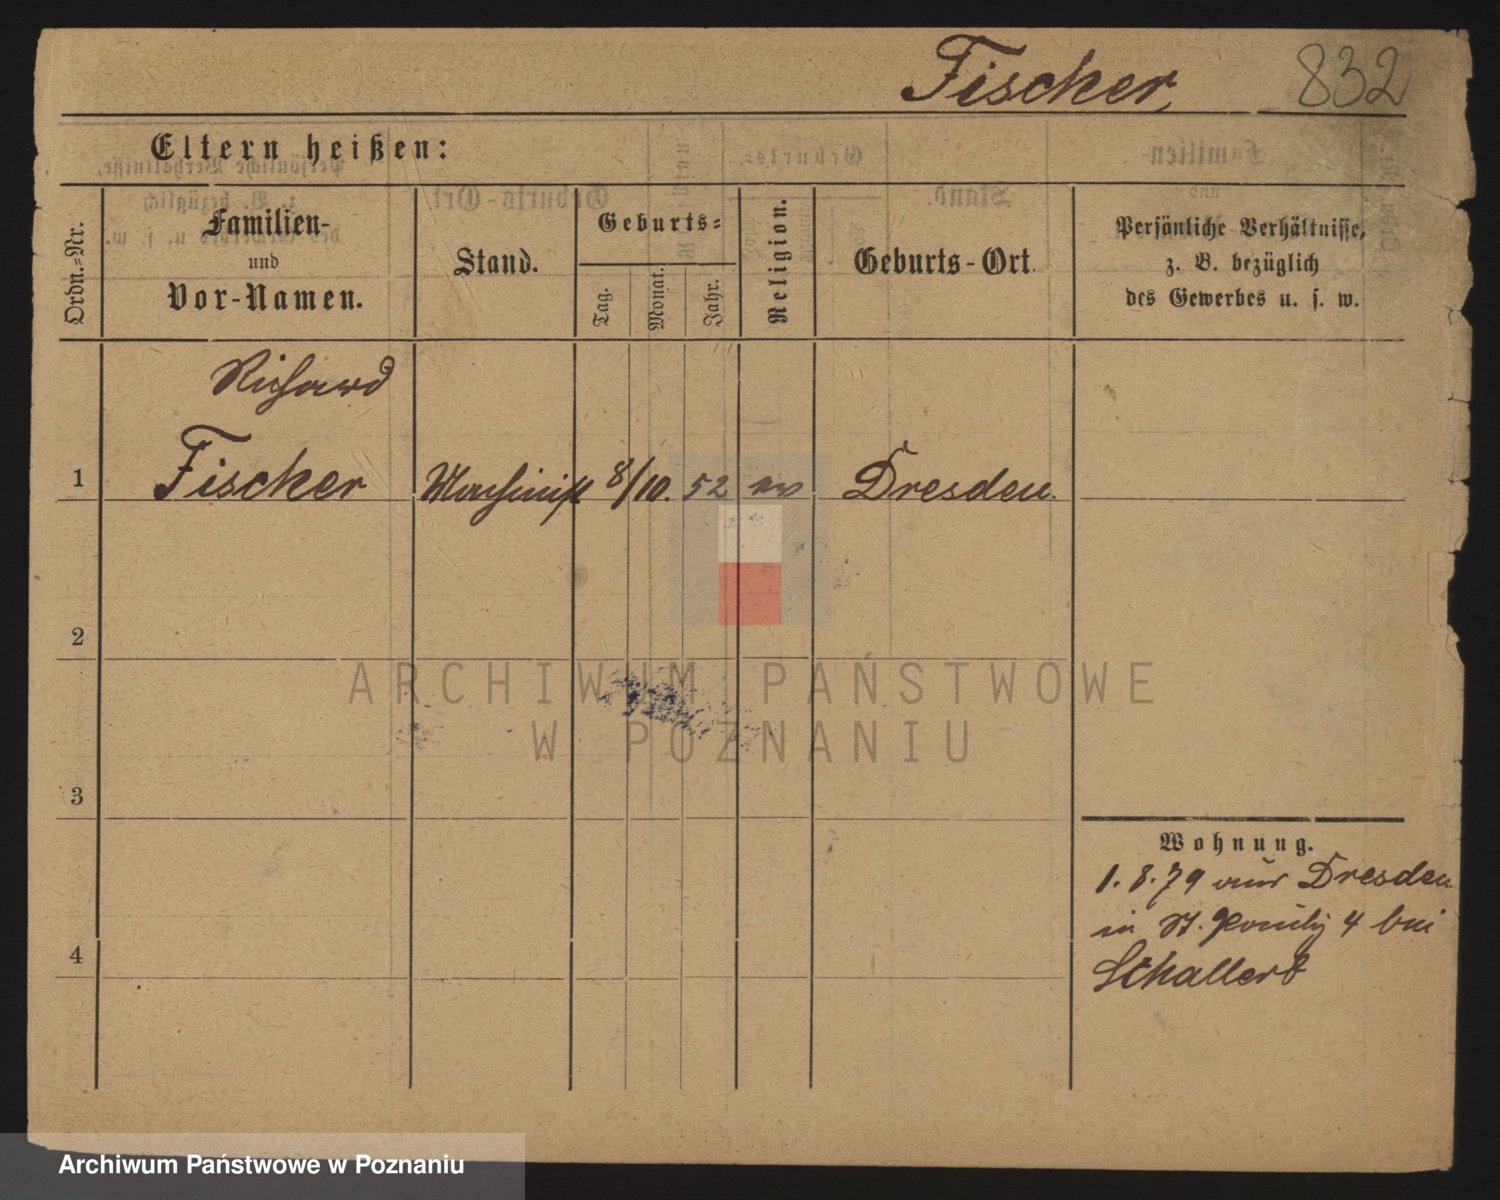 Fischer, 832
Eltern heißen:
Ordn.=Nr.
Familien-
und
Vor-Namen.
Stand.
Geburts=
Tag.
Monat.
Jahr.
Religion.
Geburts-Ort.
Persönliche Verhältnisse,
z. B. bezüglich
des Gewerbes u. s. w.
Richard
1 Fischer Maschinist 8/10. 52 ev Dresden.
2
3
4
Wohnung.
1. 8. 79 aus Dresden
in St. 4 bei
Schallert
ARCHIWUM PAŃSTWOWE
W POZNANIU
Archiwum Państwowe w Poznaniu